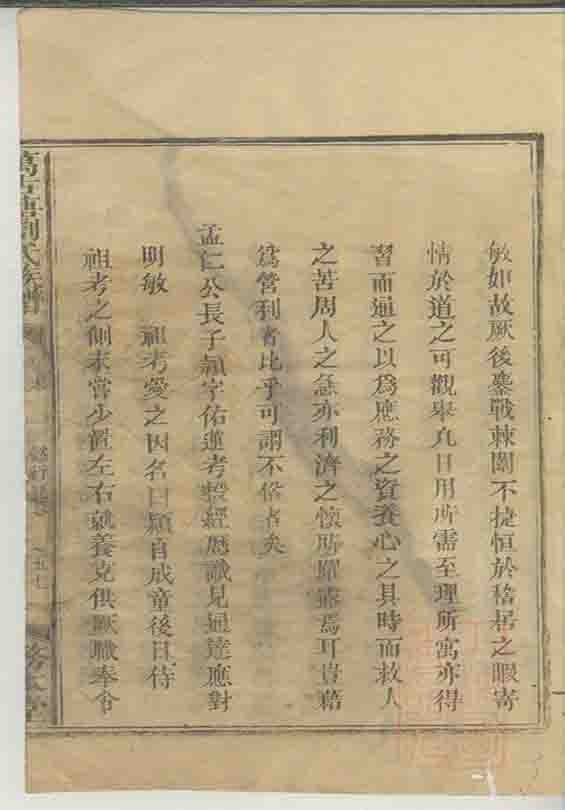 敏如故厥後鏖戰棘闈不捷恒於稽居之暇寄
情於道之可觀舉凡日用所需至理所寓亦得
習而通之以爲應務之資養心之具時而救人
之苦周人之急亦利濟之懷所
爲焉耳豈藉
爲營利者比乎可謂不俗者矣
孟仁公長子穎字佑蓮考
經歷識見通達應對
明敏 祖考愛之因名曰穎自成童後日侍
祖考之側未嘗少置左右就養克供厥職奉令
萬古塘劉氏族譜